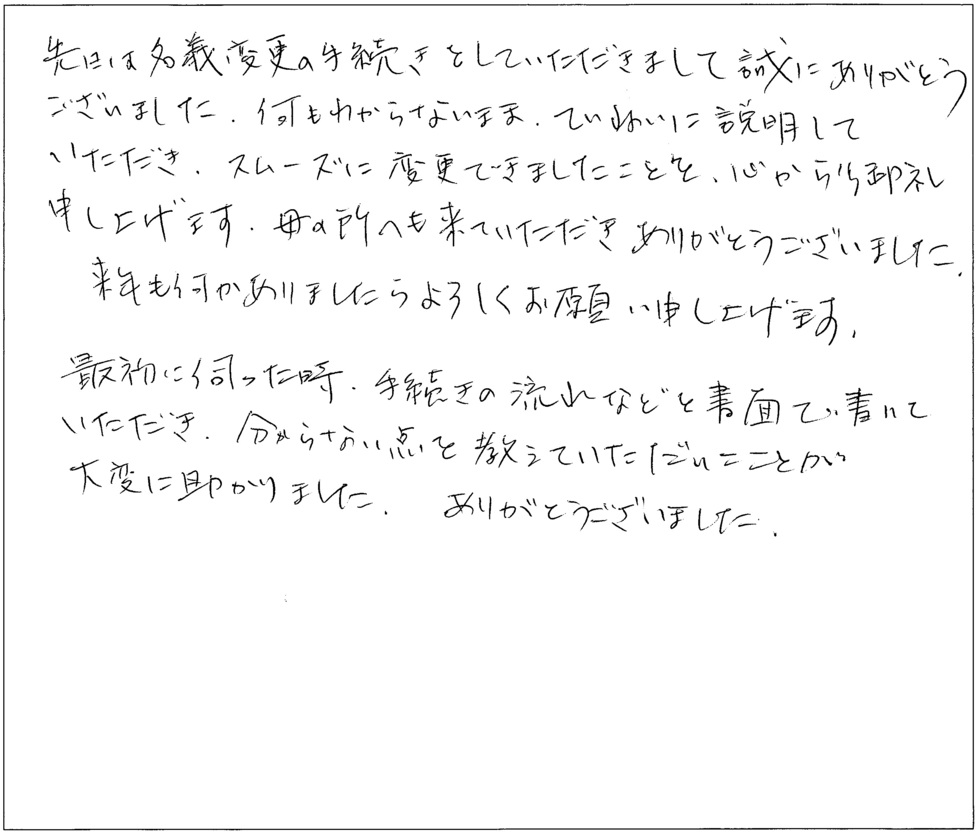 先日は名義変更の手続きをしていただきまして誠にありがとう
ございました。何もわからないまま、ていねいに説明して
いただき、スムーズに変更できましたことを、心から御礼
申し上げます。母の所へも来ていただきありがとうございました。
来年も何かありましたらよろしくお願い申し上げます。
最初に伺った時、手続きの流れなどを書面で書いて
いただき、分からない点を教えていただいたことが
大変に助かりました。 ありがとうございました。